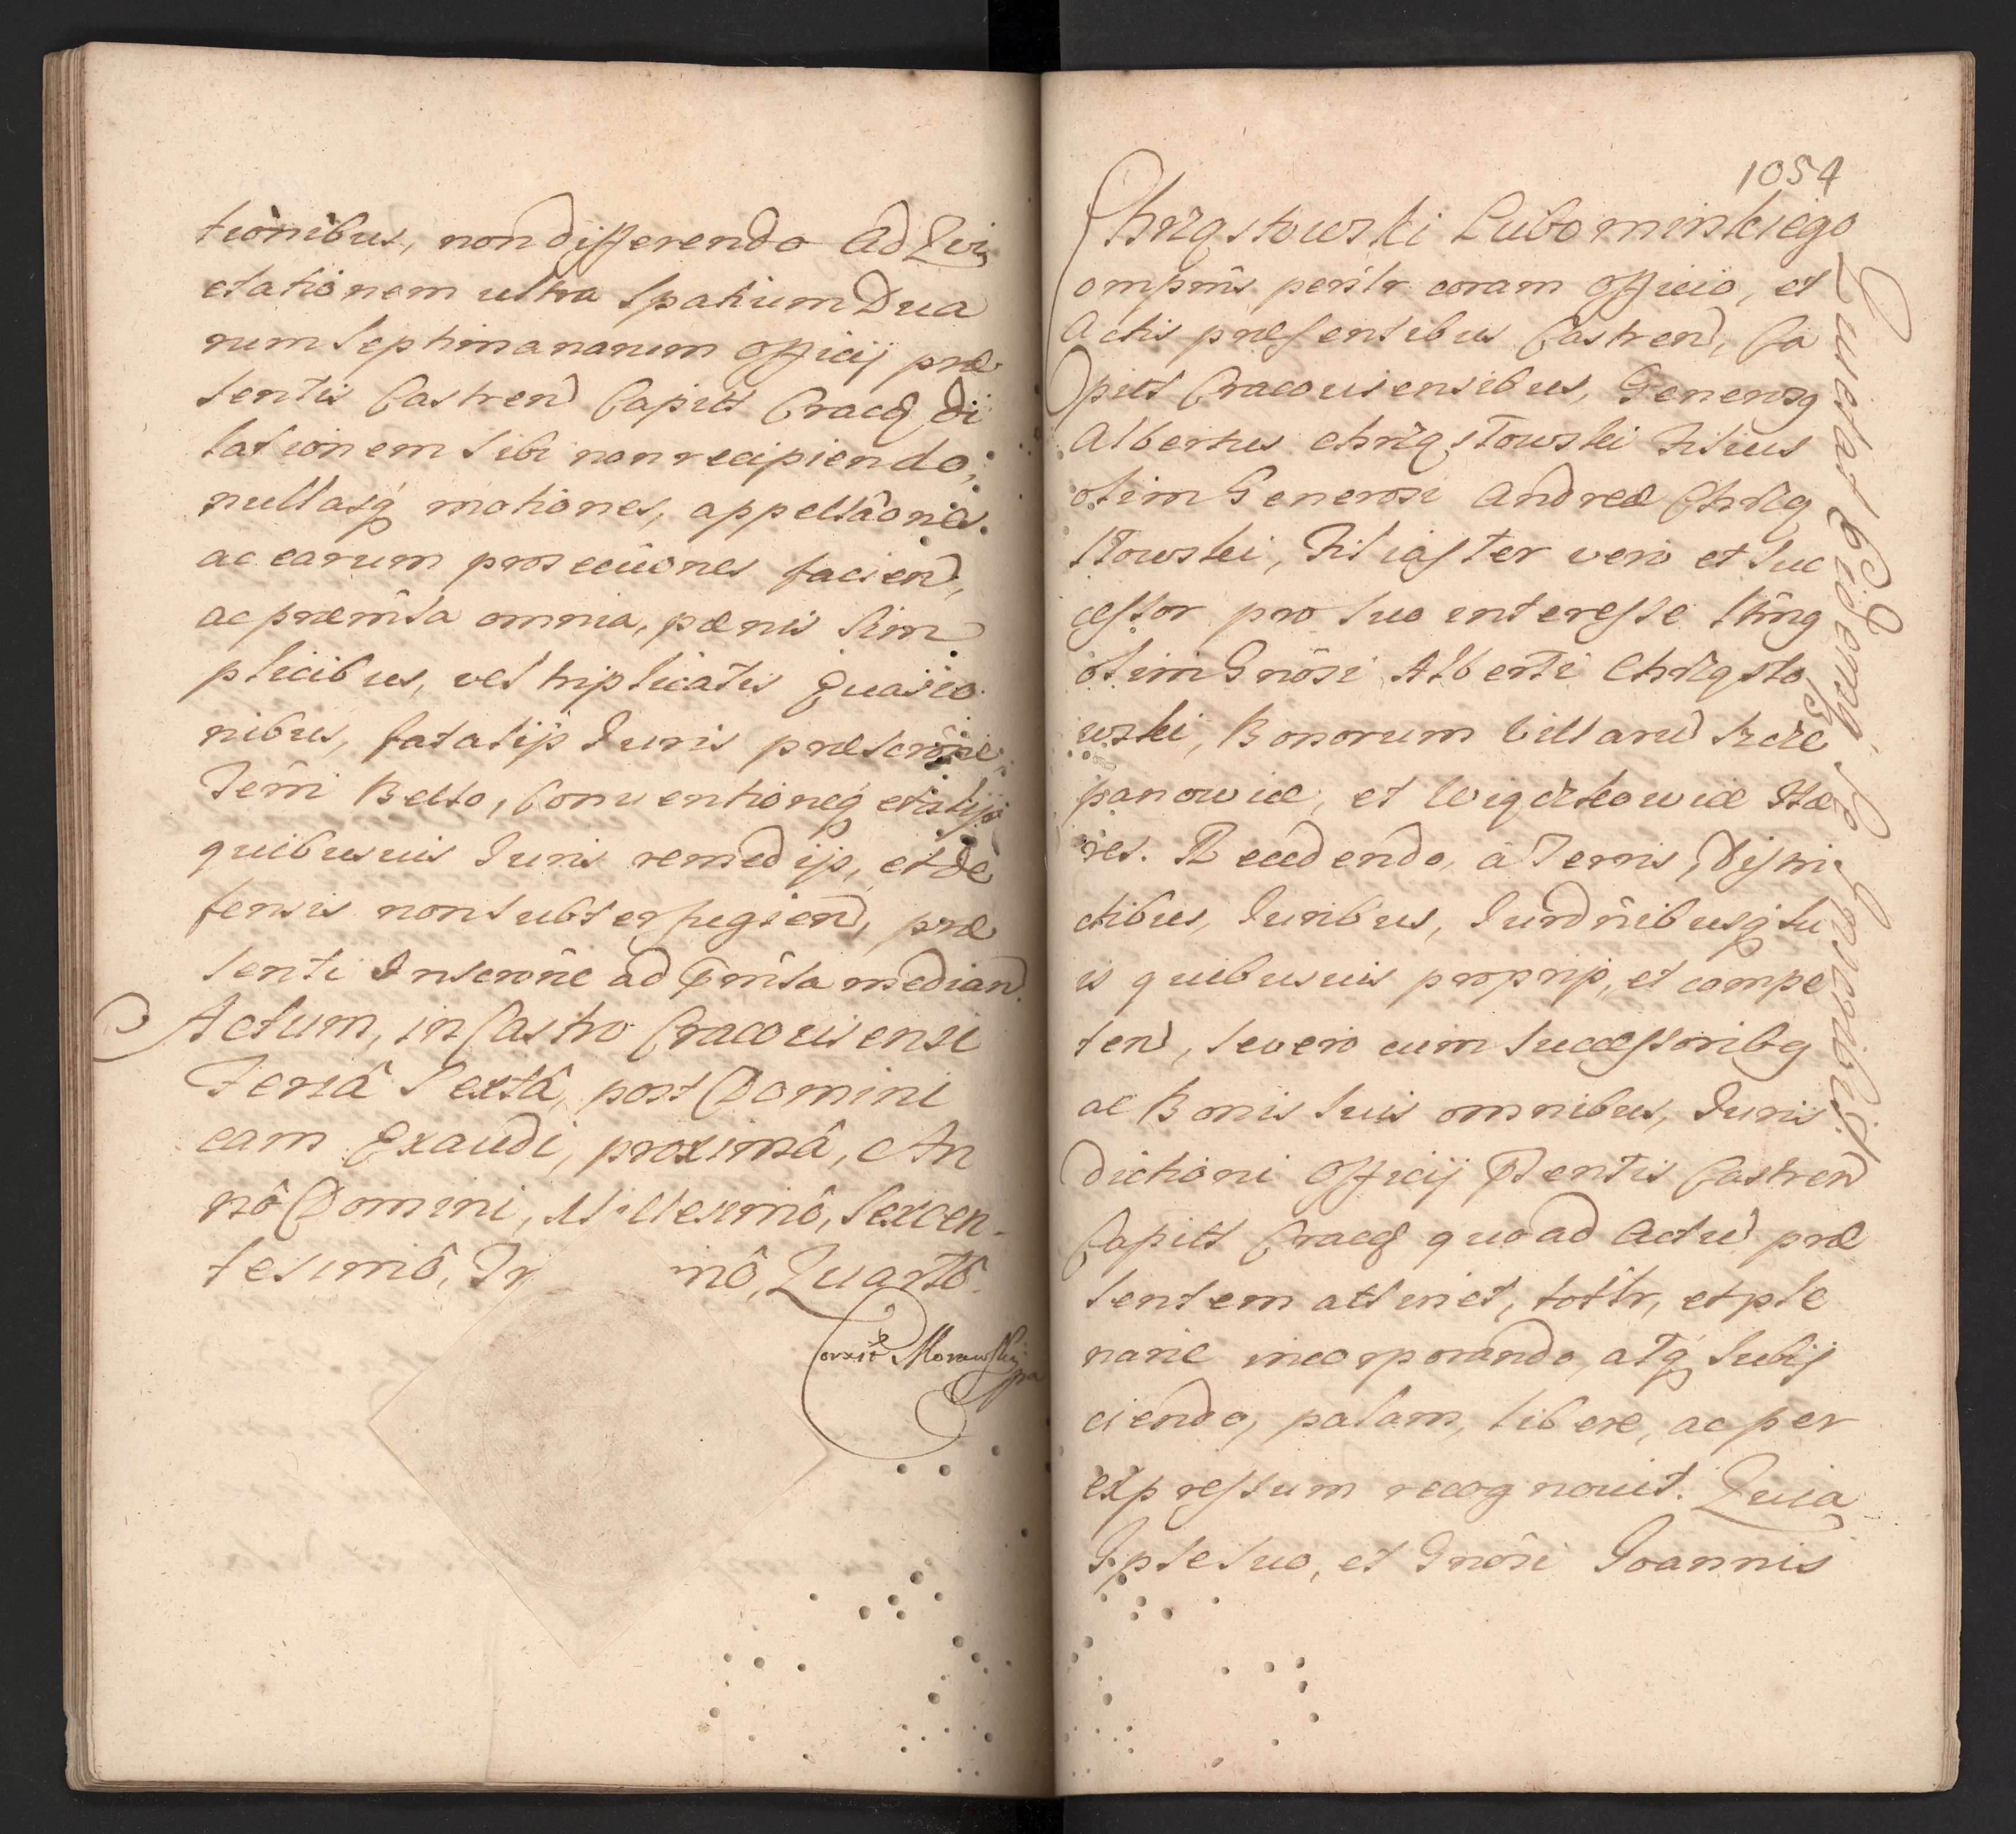 tionibus, non differendo ad Lui,
etationem ultra Spatium Dua
rum Septimanarum Officij præ
sentis Castren Capitt Cracq di
lationem sibi non recipiendo,
nullasq motiones, appellâones
ac earum prosecûiones facien,
ac præmîsa omnia, pænis Sim
plicibus, vel triplicatis
nibus, fatalijs Iuris
Terrî Bello, Conventioneq et alijs
quibusuis Iuris remedijs, et de
fensis non subterfugien, præ
senti Inscrône ad prmîsa median
Actum, in Castro Cracouiensi
Feriâ Sextâ, post Domini
cam Exaudi, proximâ, An
nô Domini, Millesimô, Sexcen-
tesimô, Tr mô, Quartô.
Corxit Morawskj
1054
Chrząstowski Lubominskiego
ompîns persltr coram Officio, et
Actis præsentibus Castren, Ca
pitt Cracouiensibus, Generosq
Albertus Chrząstowski Filius
olim Generosi Andreæ Chrzą
stowski, Filiaster vero et Suc
cessor pro suo interesse
olim Gnôsi Alberti Chrząsto
wski, Bonorum Villarū Szcze
panowice, et Wiączkowice Hæ
res. Recedendo, a Terris, Distri
ctibus, Iuribus, Iurdnîbusq su
is quibusuis proprijs, et compe
ten, se vero cum Successoribq
ac Bonis suis omnibus, Iuris
dictioni Officij pꝛntis Castren
Capitt Cracq quoad Actū præ
sentem attinet, totltr, et ple
narie incorporando, atq subij
ciendo, palam, libere, ac per
expressum recognouit. Quia
Ipse suo, et Gnôsi Joannis
Quietat Eidemq; Se Inscribit